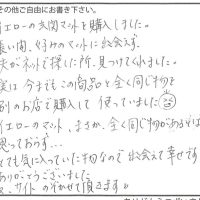 その他ご自由にお書き下さい。
イエローの玄関マットを購入しました。
い間、好みのマットに出会えず、
夫がネットで探した所、見つけてくれました。
実は今までこの商品と全く同じ物を
別のお店で購入して使っていました
イエローのマット、まさか、全く同じ物があるとは
思っておらず…
ても気に入っていた物なので出会えて幸せです
ありがとうございました
サイトのぞかせて頂きます